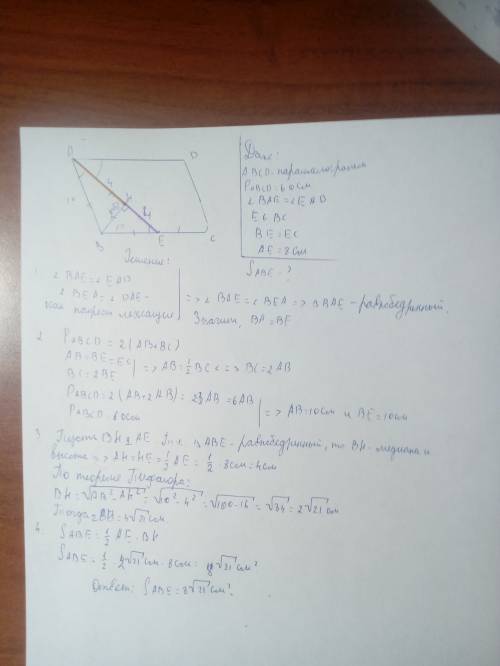 A
D
B
E
C
10
10
4
4
Дано:
ABCD - параллелограмм
P ABCD = 60 см
∠BAE = ∠EAD
E ∈ BC
BE = EC
AE = 8 см
S ABE - ?
Решение:
1. ∠BAE = ∠EAD
∠BEA = ∠DAE - => ∠BAE = ∠BEA => ΔBAE - равнобедренный.
как накрест лежащие Значит, BA = BE
2. P ABCD = 2(AB+BC)
AB = BE = EC => AB = 1/2 BC <=> BC = 2AB
BC = 2BE
P ABCD = 2(AB+2AB) = 2·3AB = 6AB
P ABCD = 60см => AB = 10см и BE = 10см
3. Пусть BH ⊥ AE Т.к. ΔABE - равнобедренный, то BH - медиана и
высота => AH = HE = 1/2 AE = 1/2 · 8см = 4см
По теореме Пифагора:
BH = √AB² - AH² = √10² - 4² = √100 - 16 = √84 = 2√21 см
Тогда 2BH = 4√21 см
4. S ABE = 1/2 AE · BH
S ABE = 1/2 · 2√21 см · 8см = 8√21 см²
Ответ: S ABE = 8√21 см².